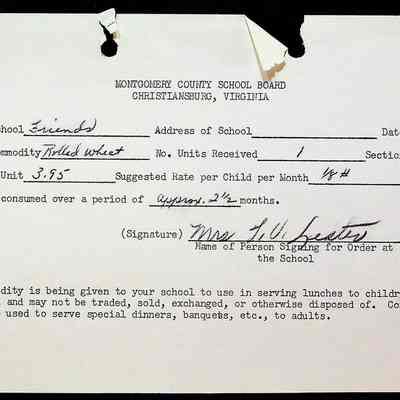 MONTGOMERY COUNTY SCHOOL BOARD
CHRISTIANSBURG, VIRGINIA
chool Friends Address of School Dat
mmodity Rolled Wheat No. Units Received 1 Section
Unit 3.95 Suggested Rate per Child per Month 1/8#
consumed over a period of approx. 2½ months.
(Signature) Mrs. F. V. Lester
Name of Person Signing for Order at
the School
dity is being given to your school to use in serving lunches to childr
and may not be traded, sold, exchanged, or otherwise disposed of. Co
used to serve special dinners, banquets, etc., to adults.